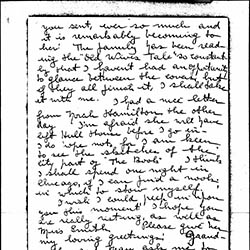 you sent, ever so much and
it is remarkably becoming to
her. The family has been read-
ing the "Old Wives Tale" so constant-
ly that I haven't had an opportunity
to glance between the covers, but
if they all finish it, I shall take
it with me.
I had a nice letter
from Norah Hamilton the other
day. I'm afraid she will have
left Hull House before I go in -
I do hope not, as I am keen
to see the sketches of the
city part of "The Book". I think
I shall spend one night in
Chicago, if I can find a nook,
in which to stow myself.
I wish I could peep in upon
you this moment. I hope you
are really resting, as well as
Miss Smith. Please give her
my loving greetings.